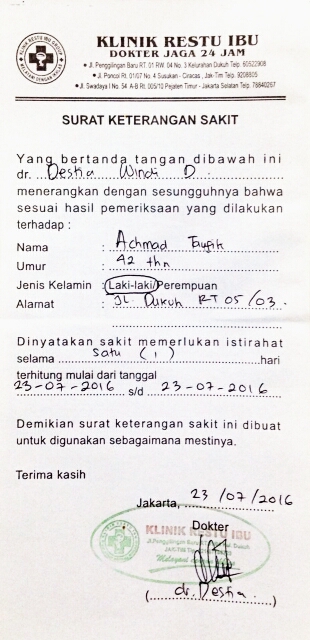 KLINIK RESTU IBU
DOKTER JAGA 24 JAM
• Jl. Penggilingan Baru RT. 01 RW. 04 No. 3 Kelurahan Dukuh Telp. 60522908
• Jl. Poncol Rt. 01/07 No. 4 Susukan - Ciracas, Jak-Tim Telp. 9208505
• Jl. Swadaya I No. 54 A-B Rt. 005/10 Pejaten Timur - Jakarta Selatan Telp. 78840267
SURAT KETERANGAN SAKIT
Yang bertanda tangan dibawah ini
dr. Destia Windi D.
menerangkan dengan sesungguhnya bahwa
sesuai hasil pemeriksaan yang dilakukan
terhadap :
Nama : Achmad Taufik
Umur : 42 thn
Jenis Kelamin : Laki-laki/Perempuan
Alamat : JL. Dukuh RT 05/03.
Dinyatakan sakit memerlukan istirahat
selama satu (1) hari
terhitung mulai dari tanggal
23-07-2016 s/d 23-07-2016
Demikian surat keterangan sakit ini dibuat
untuk digunakan sebagaimana mestinya.
Terima kasih
Jakarta, 23/07/2016
Dokter
KLINIK RESTU IBU
(dr. Destia.)